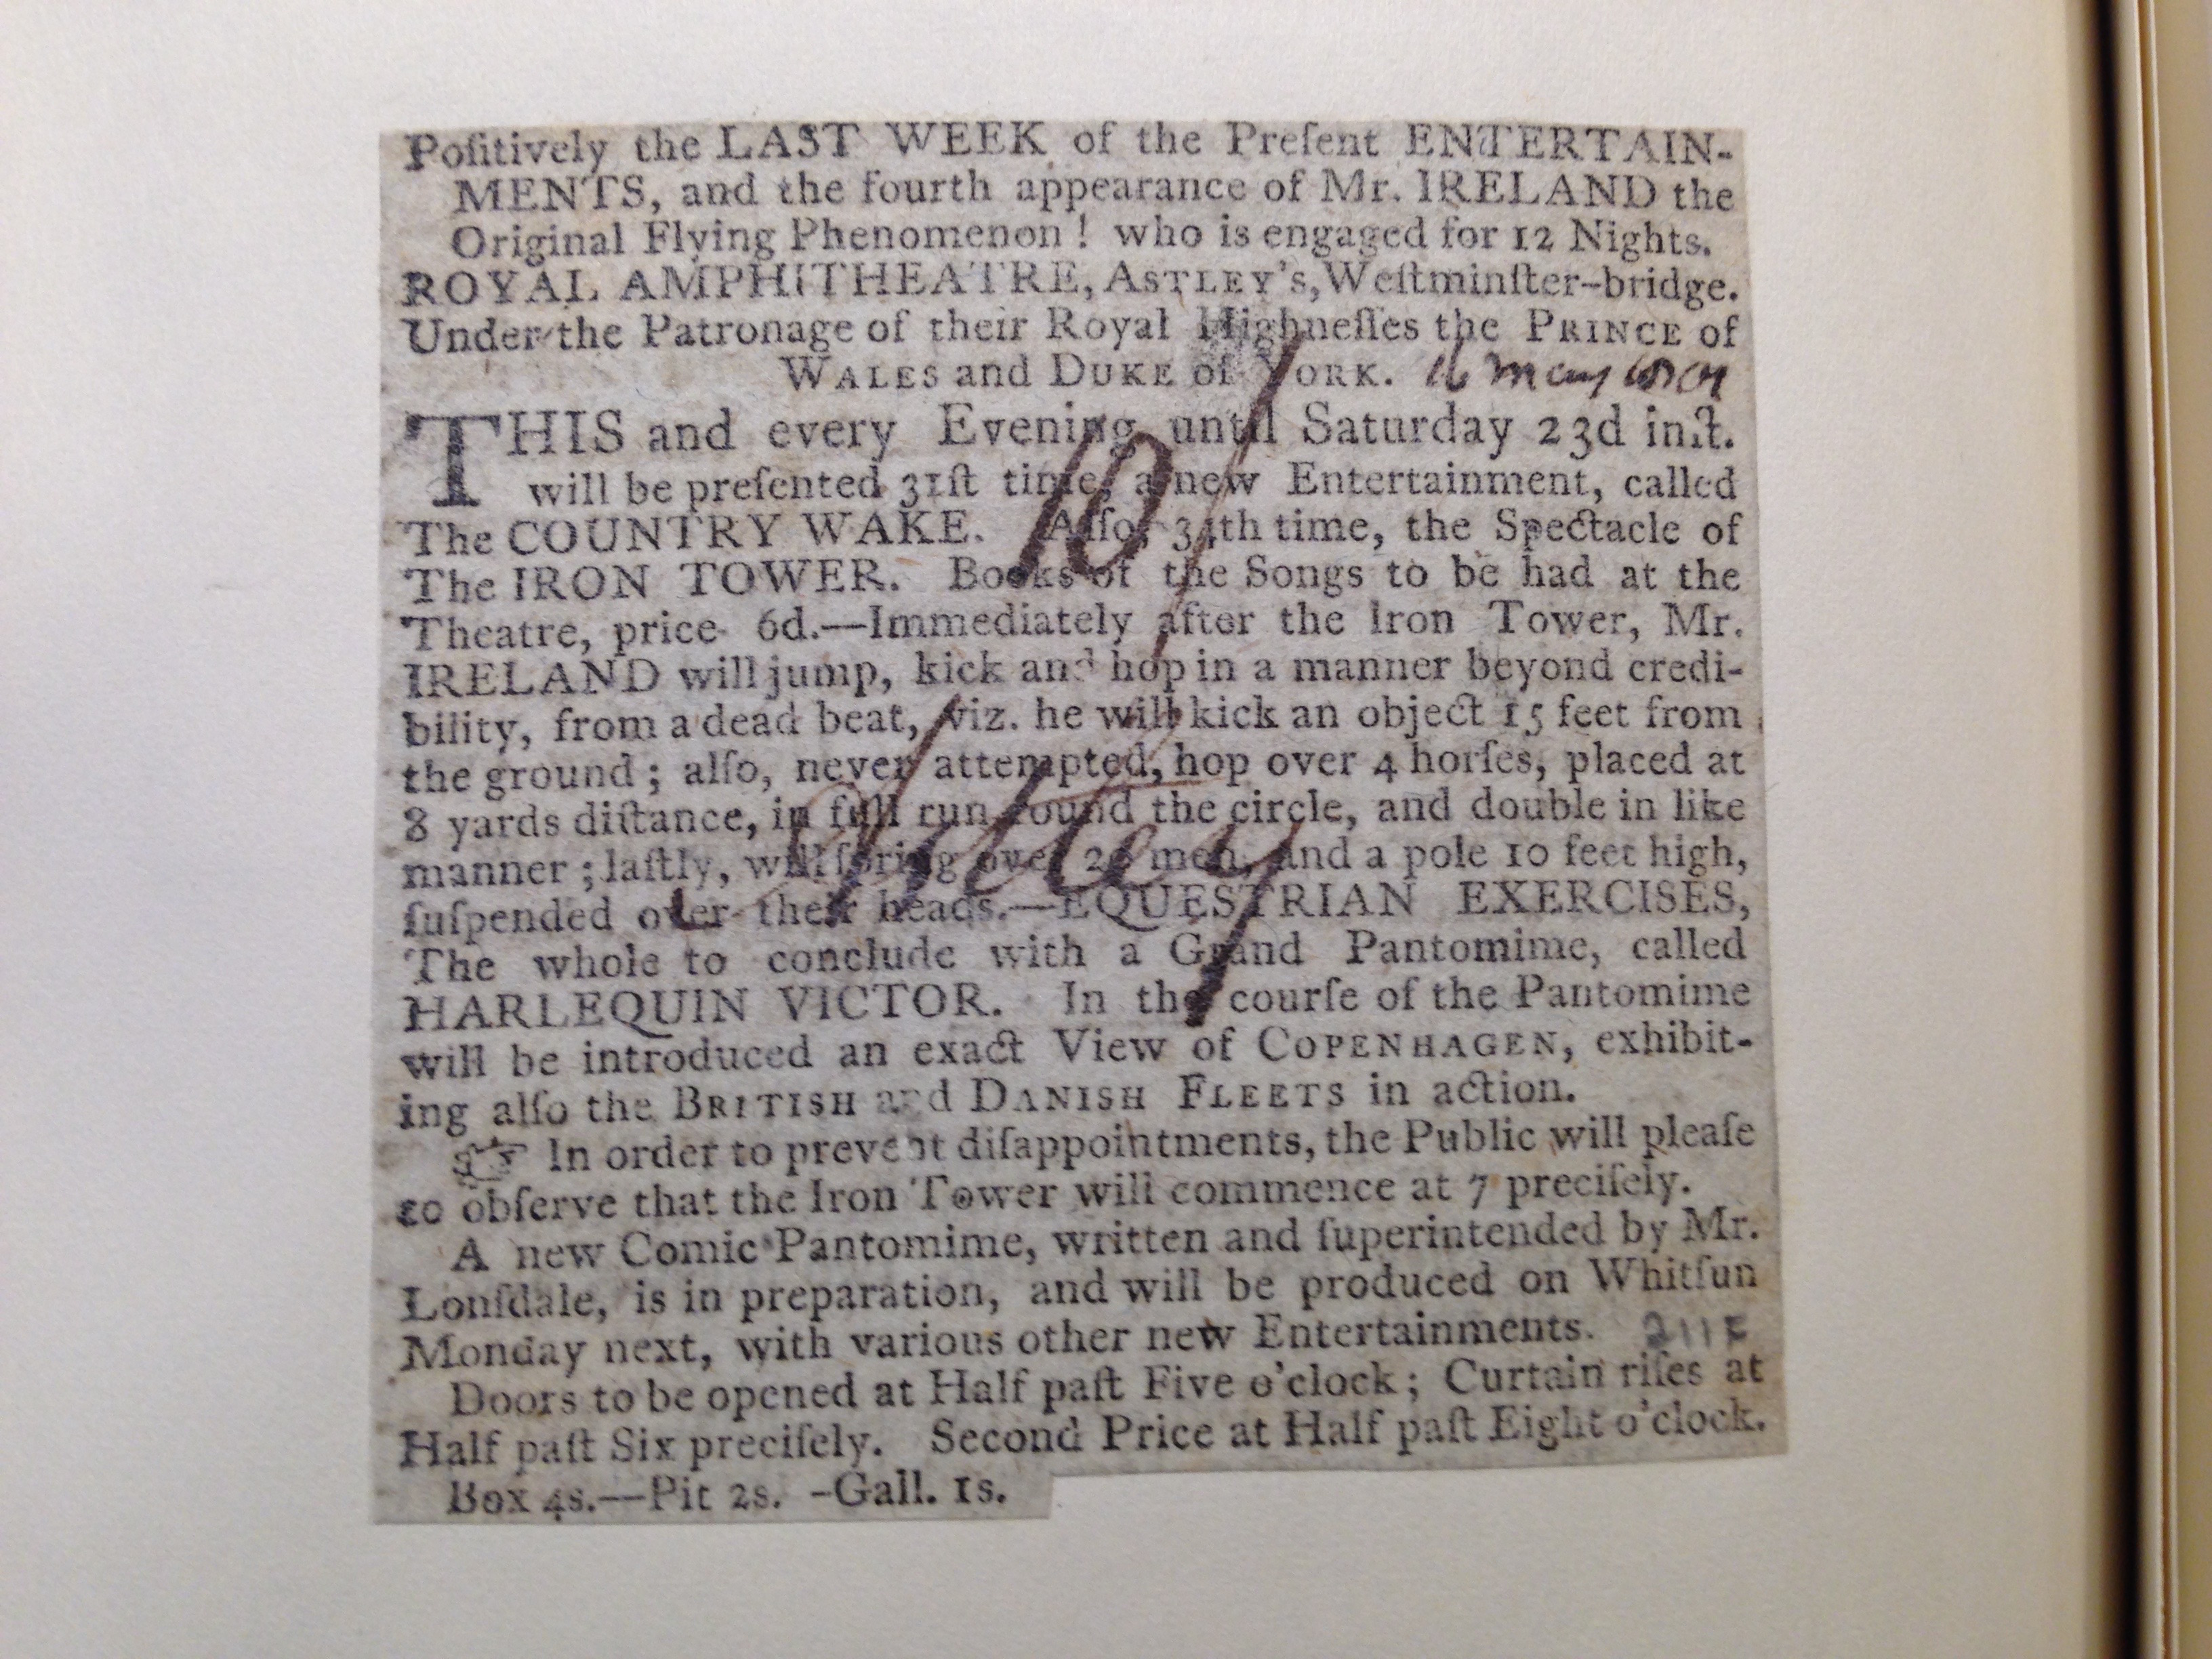 Poſitively the LAST WEEK of the Preſent ENTERTAIN-
MENTS, and the fourth appearance of Mr. IRELAND the
Original Flying Phenomenon! who is engaged for 12 Nights.
ROYAL AMPHITHEATRE, ASTLEY's, Weſtminſter-bridge.
Under the Patronage of their Royal Highneſſes the PRINCE of
WALES and DUKE of YORK. 16 may
THIS and every Evening until Saturday 23d inſt.
will be preſented 31ſt time, a new Entertainment, called
The COUNTRY WAKE. Alſo, 34th time, the Spectacle of
The IRON TOWER. Books of the Songs to be had at the
Theatre, price 6d.—Immediately after the Iron Tower, Mr.
IRELAND will jump, kick and hop in a manner beyond credi-
bility, from a dead beat, viz. he will kick an object 15 feet from
the ground; alſo, never attempted, hop over 4 horſes, placed at
8 yards diſtance, in full run round the circle, and double in like
manner; laſtly, will ſpring over men, and a pole 10 feet high,
ſuſpended over their heads.—EQUESTRIAN EXERCISES,
The whole to conclude with a Grand Pantomime, called
HARLEQUIN VICTOR. In the courſe of the Pantomime
will be introduced an exact View of COPENHAGEN, exhibit-
ing alſo the BRITISH and DANISH FLEETS in action.
☞ In order to prevent diſappointments, the Public will pleaſe
to obſerve that the Iron Tower will commence at 7 preciſely.
A new Comic Pantomime, written and ſuperintended by Mr.
Lonſdale, is in preparation, and will be produced on Whitſun
Monday next, with various other new Entertainments.
Doors to be opened at Half paſt Five o'clock; Curtain riſes at
Half paſt Six preciſely. Second Price at Half paſt Eight o'clock.
Box 4s.—Pit 2s. -Gall. 1s.